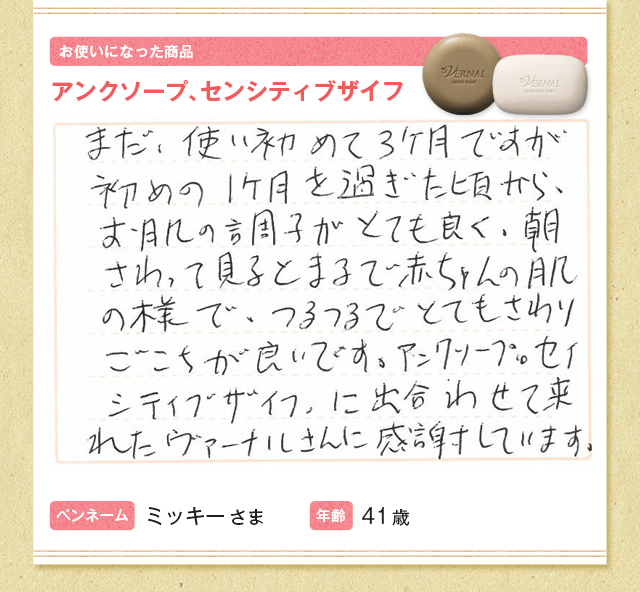 お使いになった商品
アンクソープ、センシティブザイフ
VERNAL
VERNAL
まだ、使い初めて3ケ月ですが
初めの1ケ月を過ぎた頃から、
お肌の調子がとても良く、朝
さわって見るとまるで赤ちゃんの肌
の様で、つるつるでとてもさわり
ごこちが良いです。アンクソープ。セイ
シティブザイフ、に出合わせて来
れたヴァーナルさんに感謝しています。
ペンネーム ミッキーさま 年齢 41歳